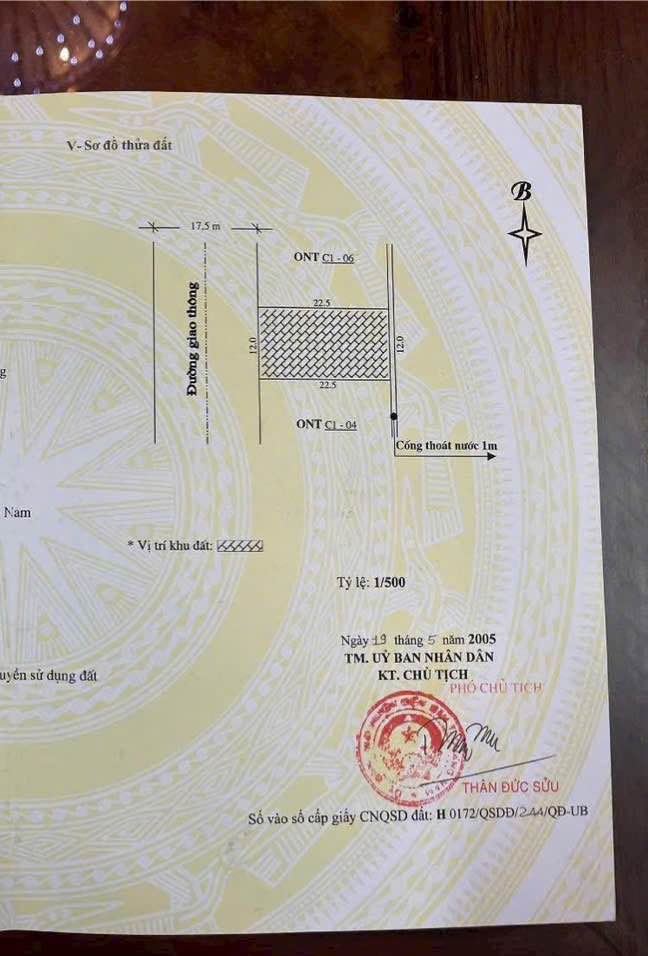 V- Sơ đồ thửa đất
B
17,5 m
ONT C1 - 06
22.5
Đường giao thông
12.0
12.0
22.5
ONT C1 - 04
Cống thoát nước 1m
g
Nam
* Vị trí khu đất:
Tỷ lệ: 1/500
Ngày 19 tháng 5 năm 2005
TM. UỶ BAN NHÂN DÂN
KT. CHỦ TỊCH
PHÓ CHỦ TỊCH
uyền sử dụng đất
THÂN ĐỨC SỬU
Số vào sổ cấp giấy CNQSD đất: H 0172/QSDĐ/244/QĐ-UB